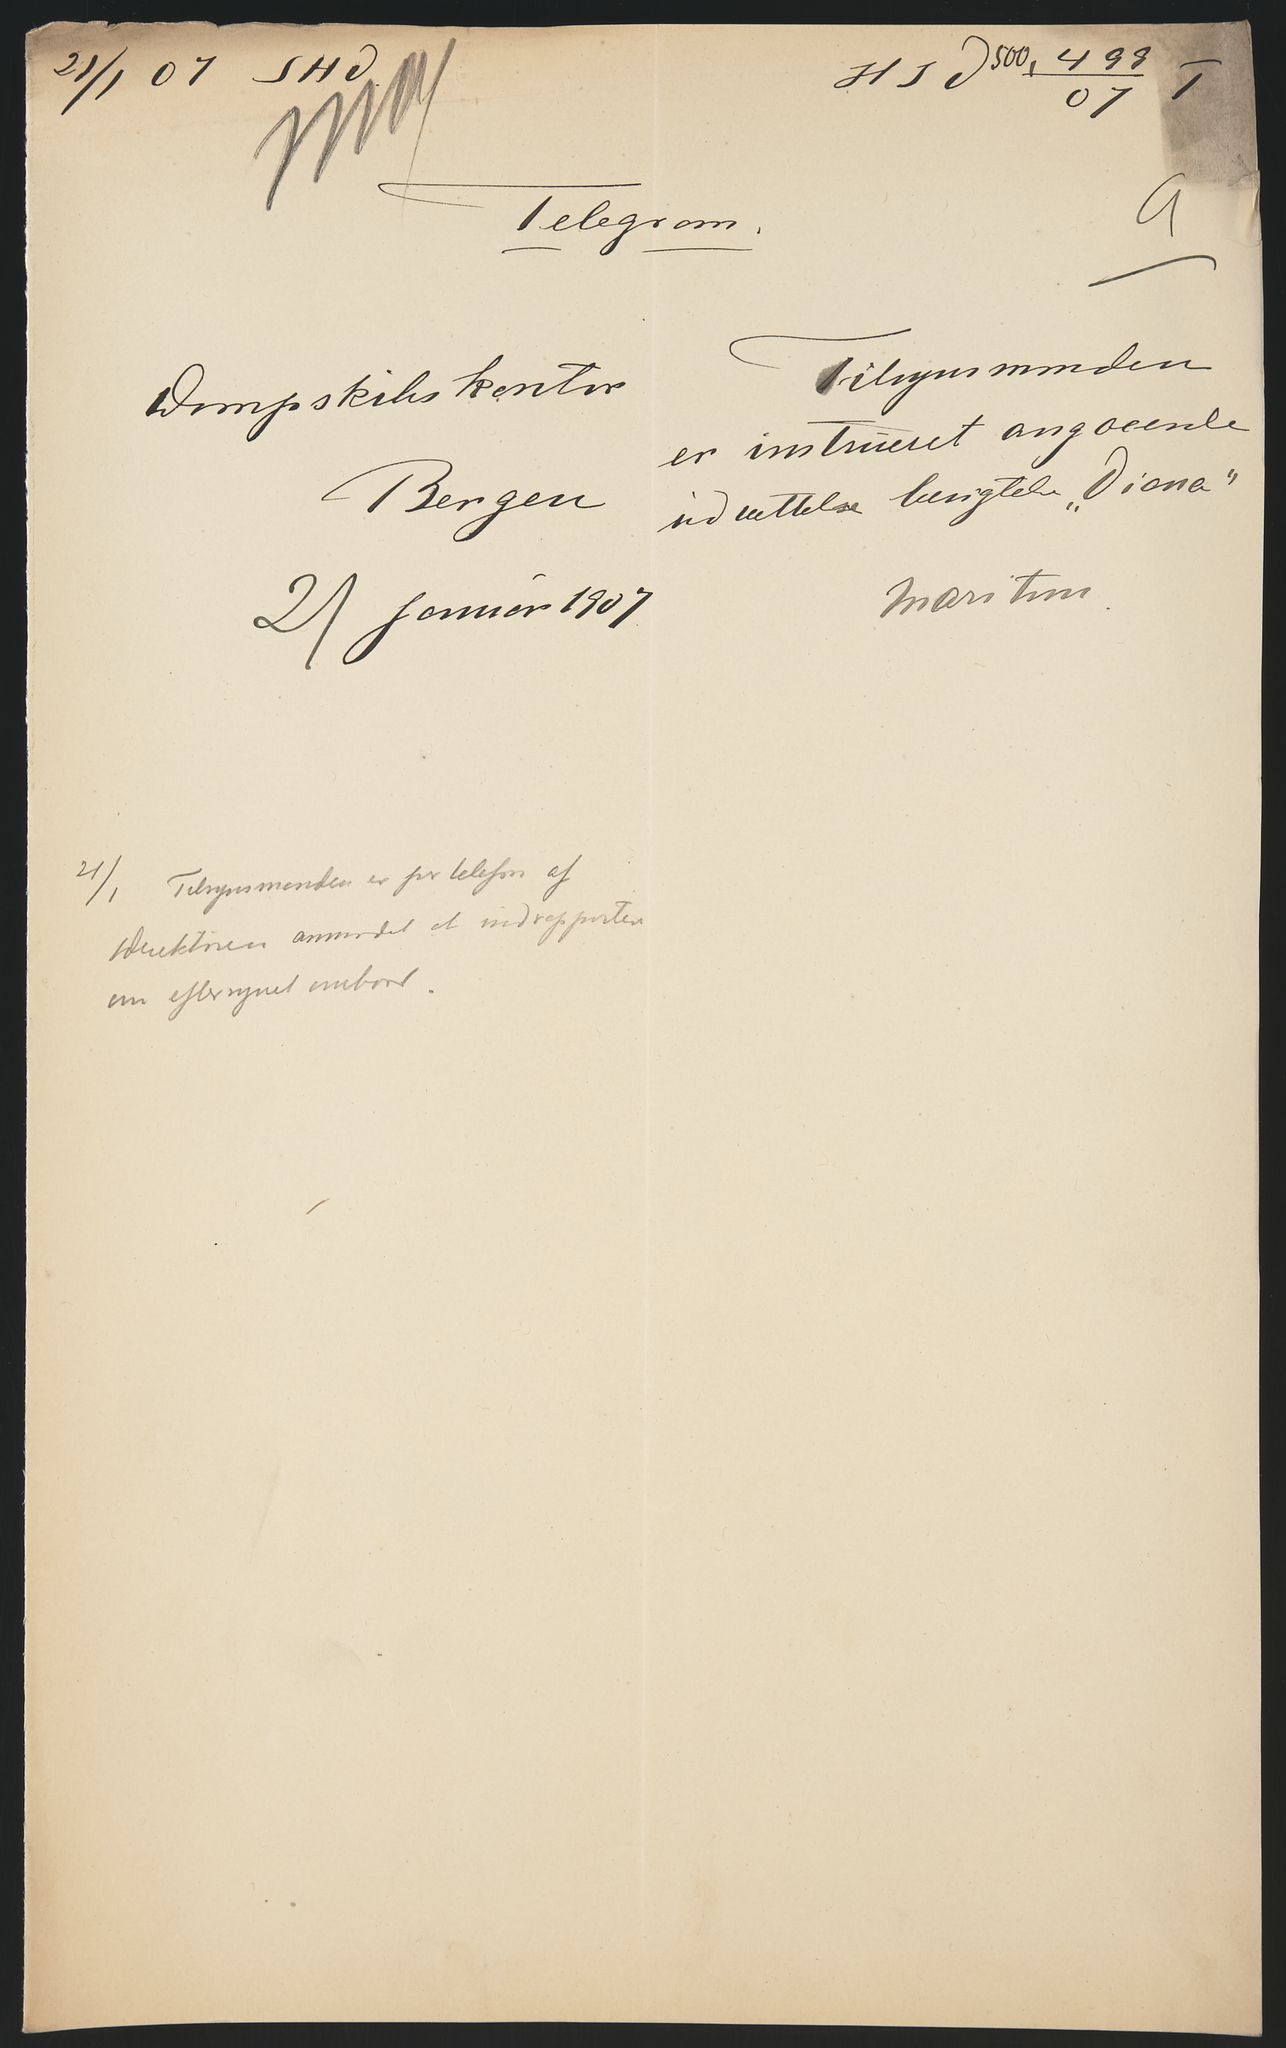 21/1 07 SHD
HSD 500, 499/07 T
a
Telegram.
Dampskibskontor
Bergen
21 januar 1907
Tilsynsmanden
er instrueret angaaende
udsættelse besigtelse „Diana"
Maritim.
21/1 Tilsynsmanden er per telefon af
Direktøren anmodet at indrapportere
om eftersynet ombord.